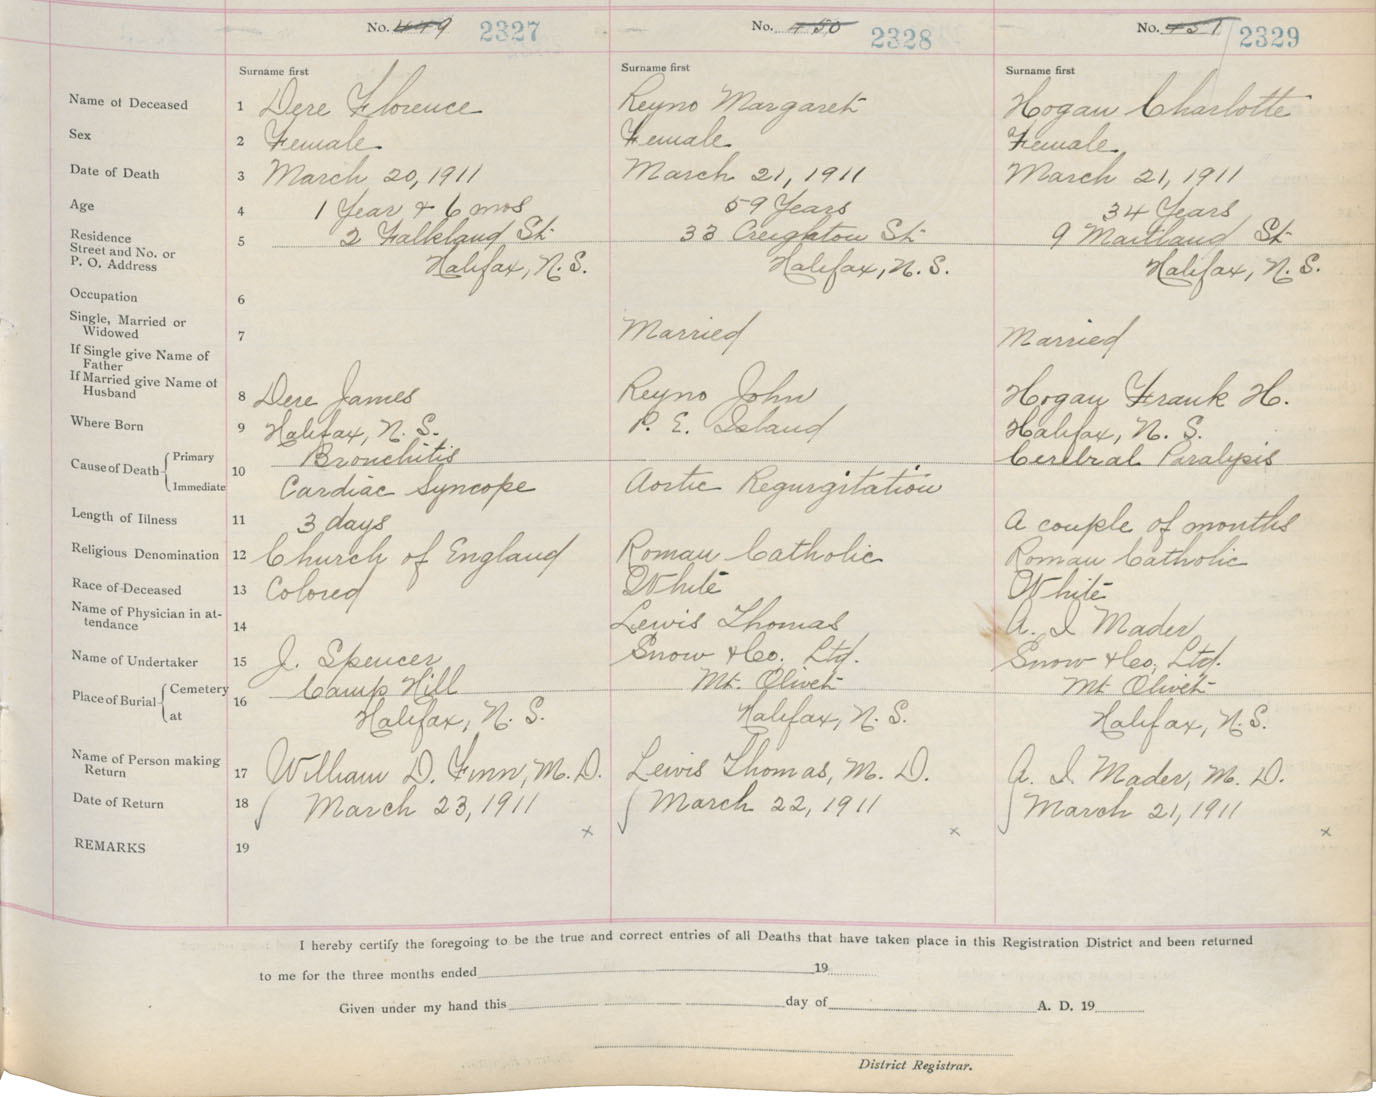 No. 449 2327 No. 450 2328 No. 451 2329
Surname first Surname first Surname first
Name of Deceased 1 Dere Florence Reyno Margaret Hogan Charlotte
Sex 2 Female Female Female
Date of Death 3 March 20, 1911 March 21, 1911 March 21, 1911
Age 4 1 Year & 6 mos 59 Years 34 Years
Residence
Street and No. or 5 2 Falkland St. 33 Creighton St. 9 Maitland St.
P. O. Address Halifax, N. S. Halifax, N. S. Halifax, N. S.
Occupation 6
Single, Married or
Widowed 7 Married Married
If Single give Name of
Father
If Married give Name of
Husband 8 Dere James Reyno John Hogan Frank H.
Where Born 9 Halifax, N. S. P. E. Island Halifax, N. S.
Cause of Death Primary 10 Bronchitis Cerebral Paralysis
Immediate Cardiac Syncope Aortic Regurgitation
Length of Illness 11 3 days A couple of months
Religious Denomination 12 Church of England Roman Catholic Roman Catholic
Race of Deceased 13 Colored White White
Name of Physician in at-
tendance 14 Lewis Thomas A. I Mader
Name of Undertaker 15 J. Spencer Snow & Co. Ltd. Snow & Co. Ltd.
Place of Burial Cemetery 16 Camp Hill Mt. Olivet Mt Olivet
at Halifax, N. S. Halifax, N. S. Halifax, N. S.
Name of Person making
Return 17 William D. Finn, M. D. Lewis Thomas, M. D. A. I Mader, M. D.
Date of Return 18 March 23, 1911 March 22, 1911 March 21, 1911
x x x
REMARKS 19
I hereby certify the foregoing to be the true and correct entries of all Deaths that have taken place in this Registration District and been returned
to me for the three months ended 19
Given under my hand this day of A. D. 19
District Registrar.